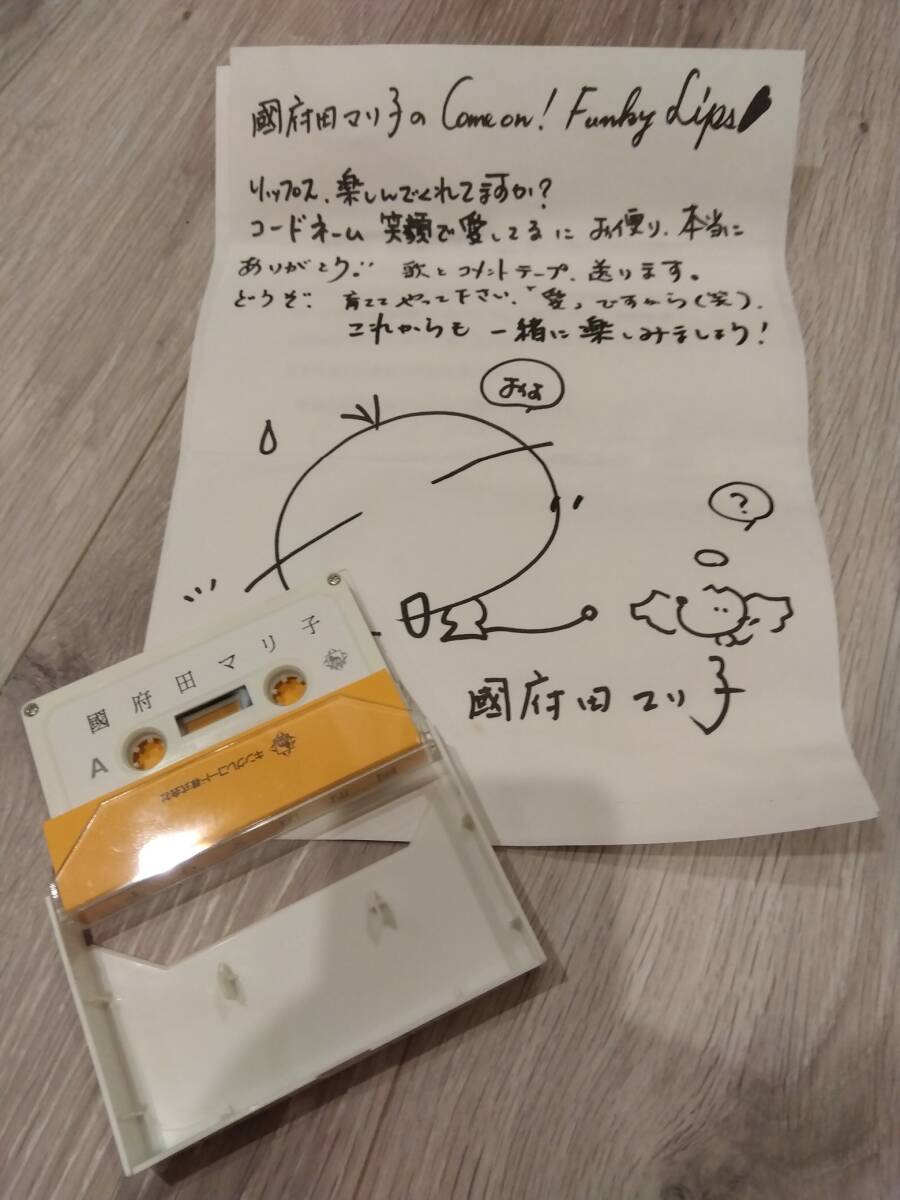 國府田マリ子の Come on! Funky Lips
リップス、楽しんでくれてますか?
コードネーム 笑顔で愛してるに お便り、本当に
ありがとう。 歌とコメントテープ、送ります。
どうぞ、育ててやって下さい。「愛」ですから(笑)。
これからも 一緒に楽しみましょう!
?
國府田マリ子
國府田マリ子
A
キングレコード株式会社